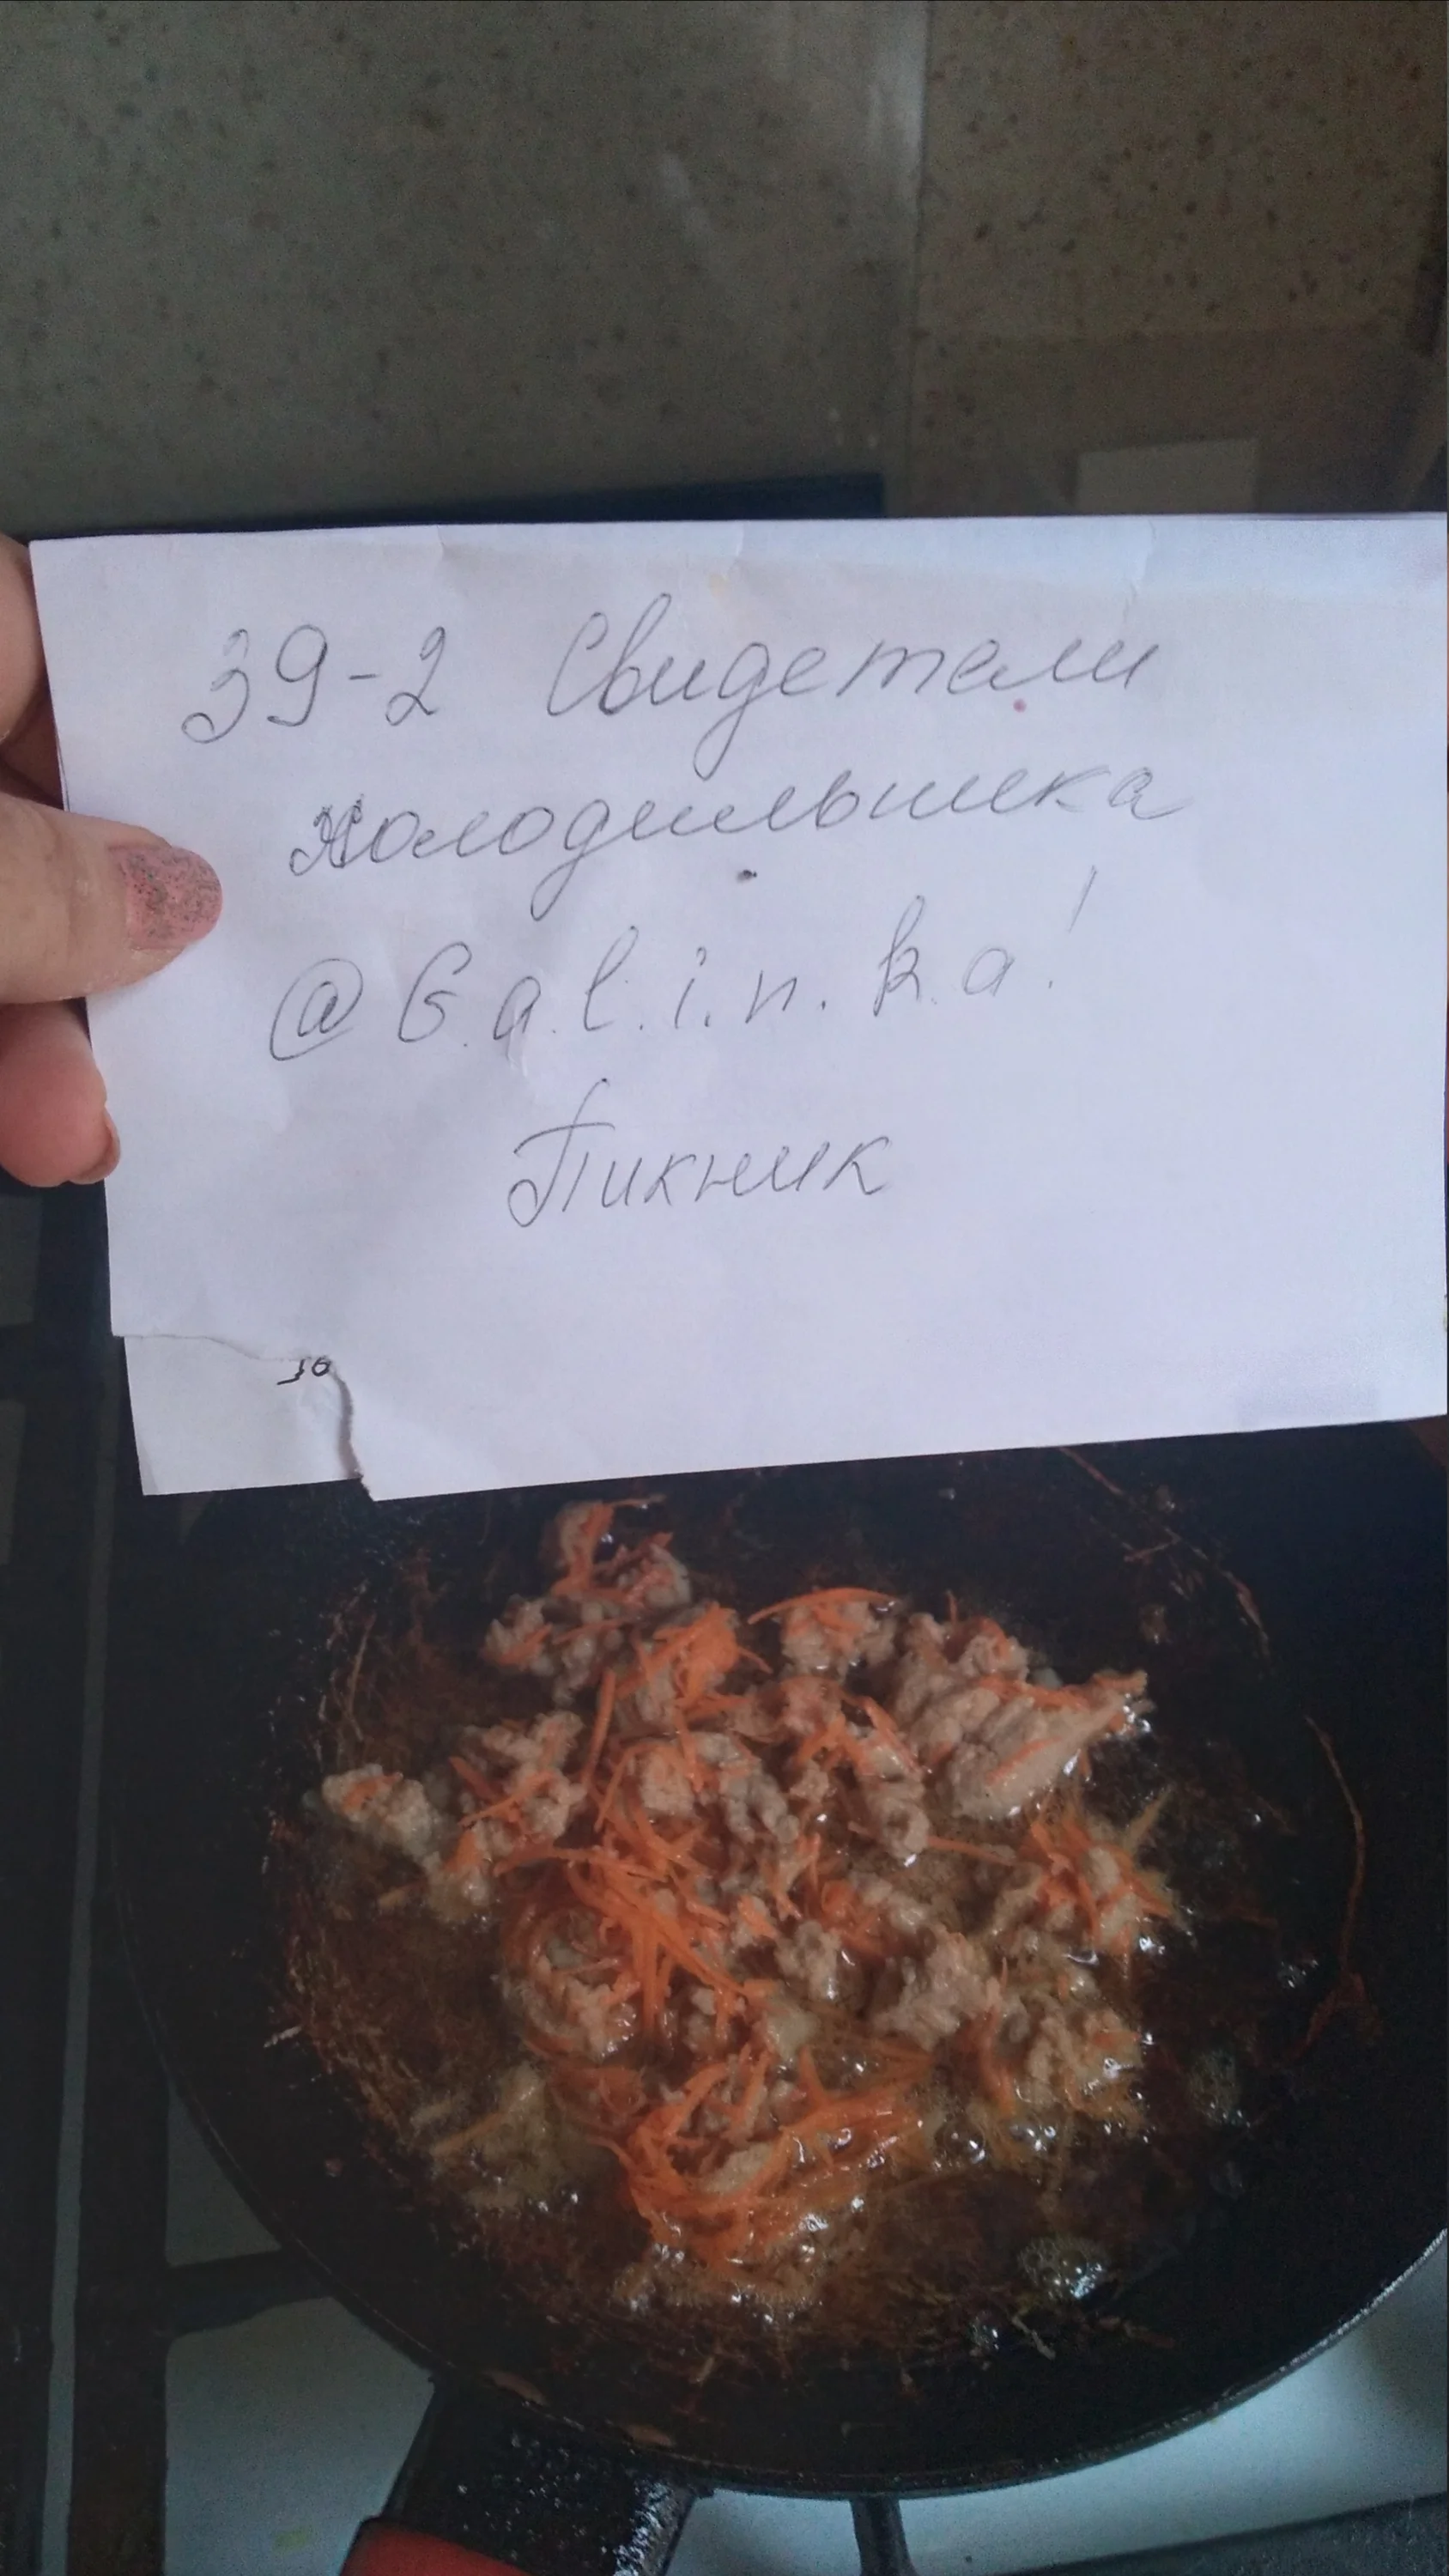 39-2 Свидетели
холодильника
@G.a.l.i.n.k.a!
Пикник